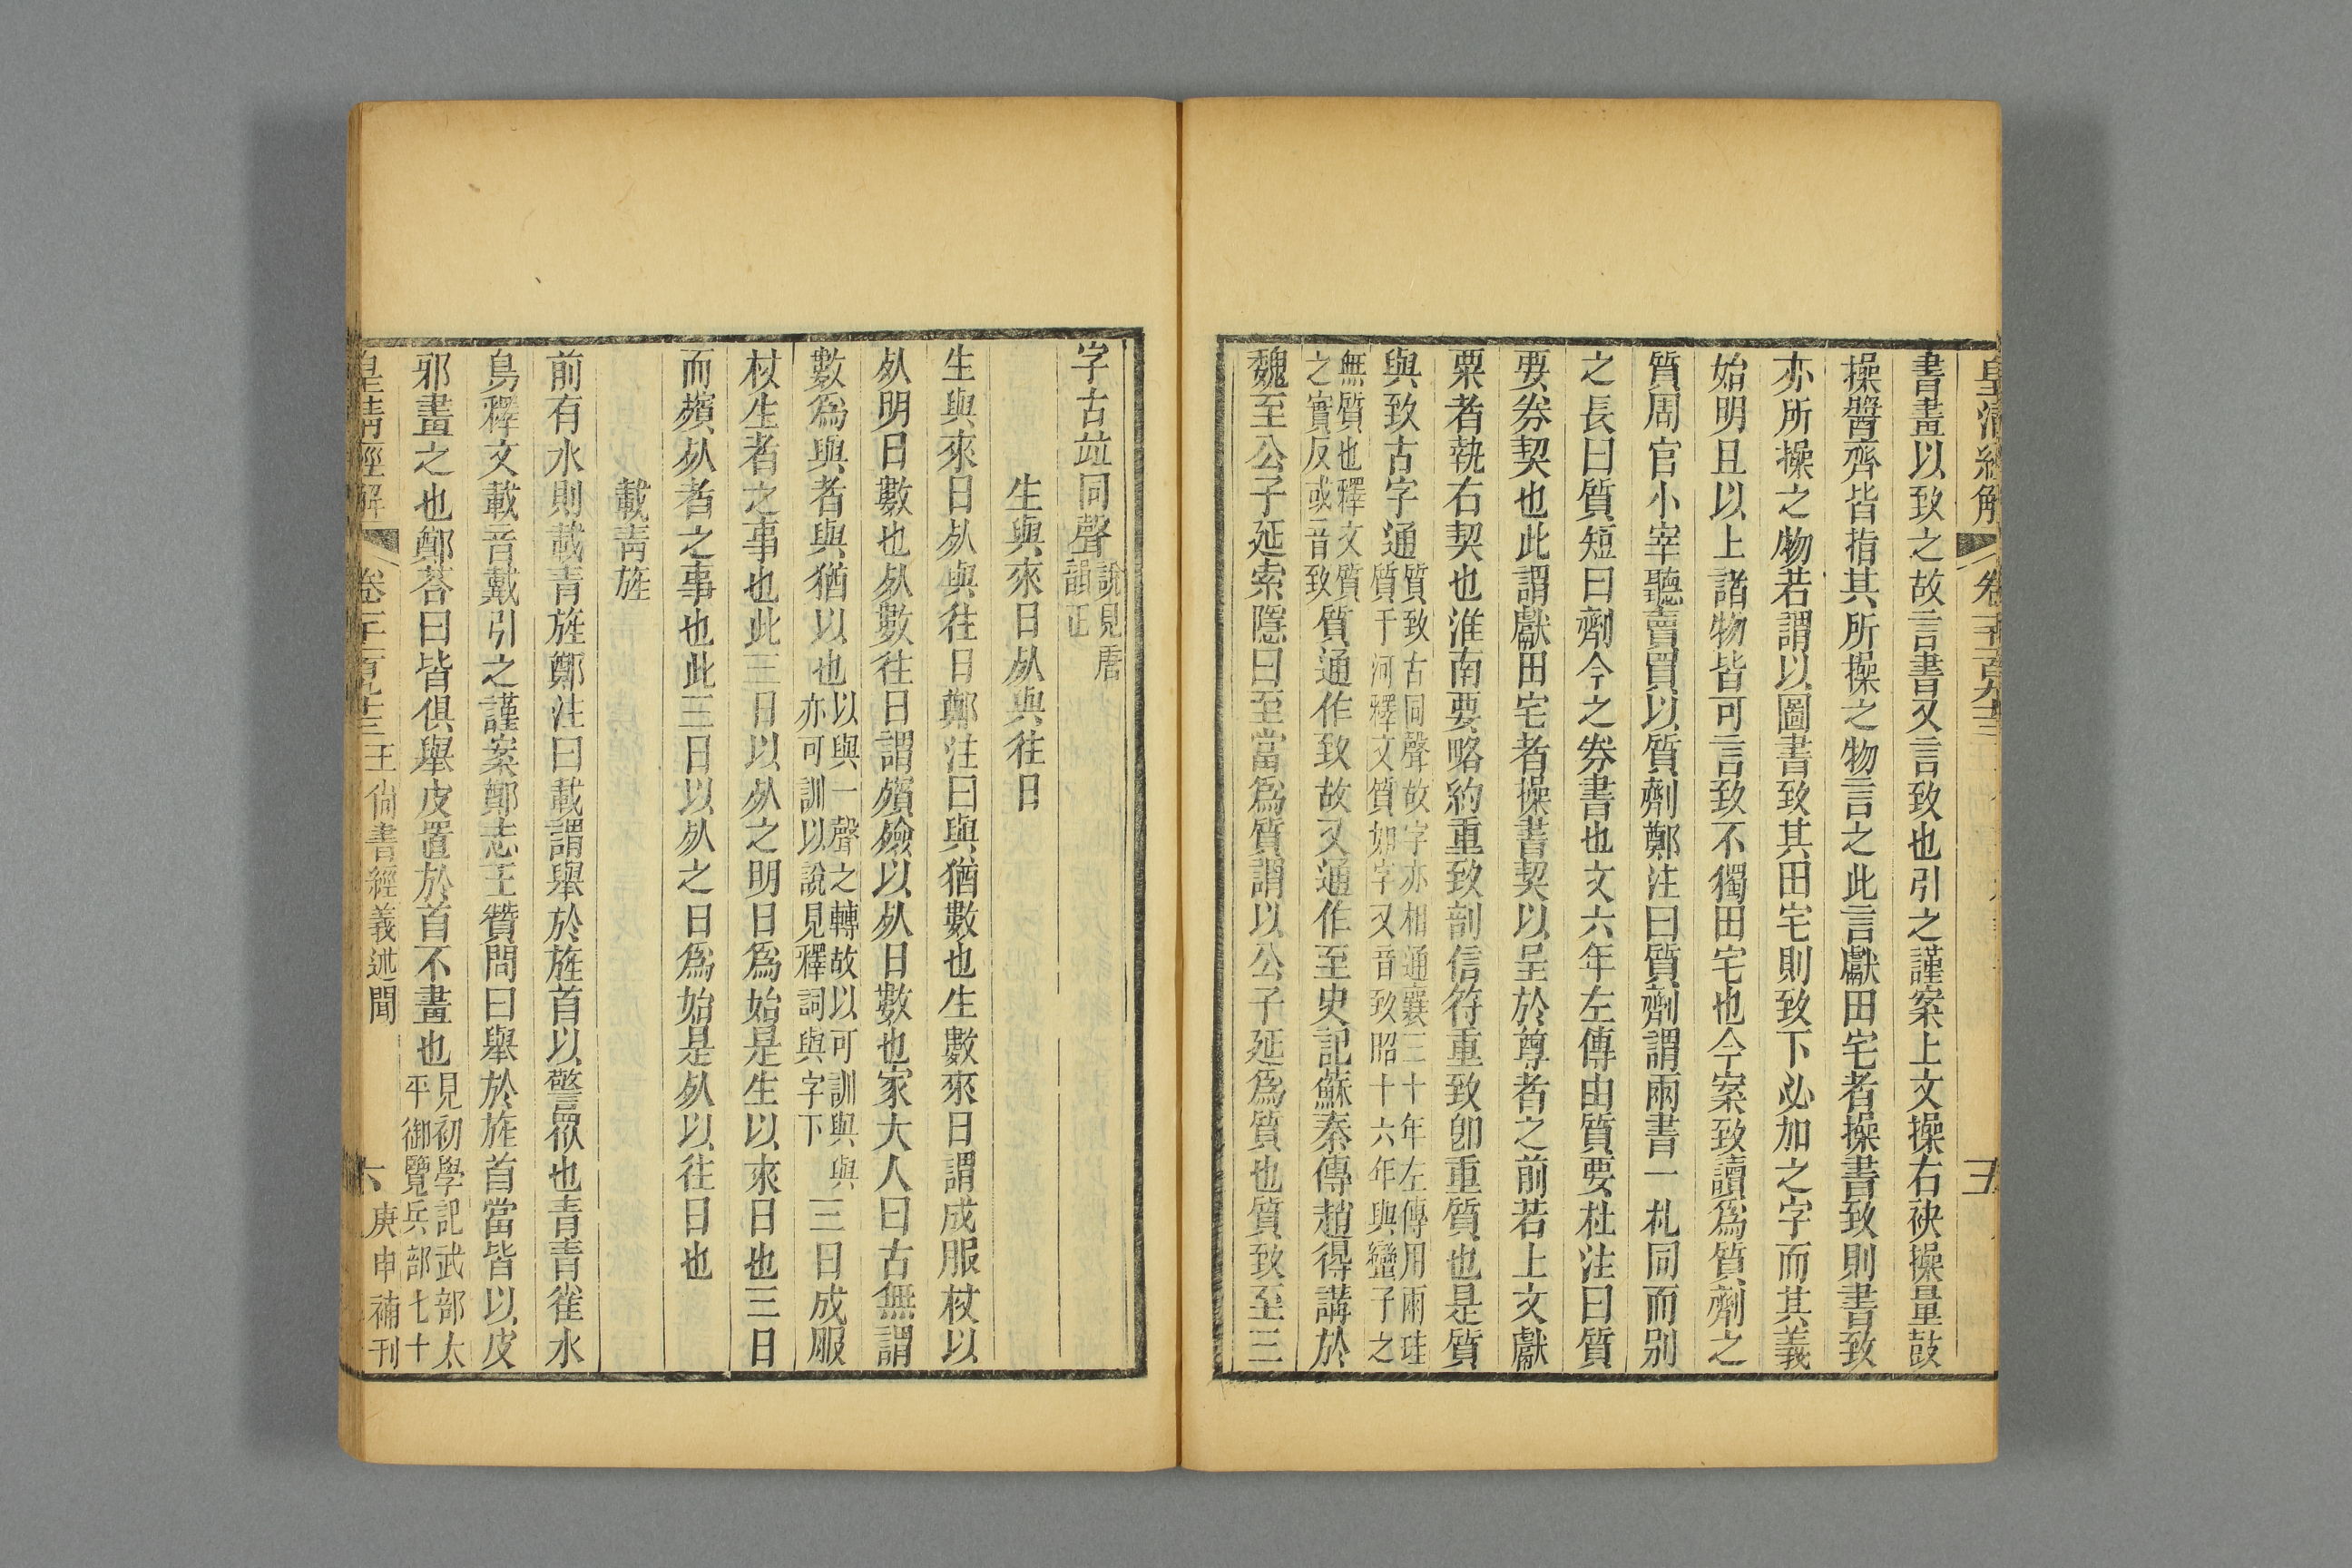 皇清經解
書畫以致之故言書又言致也引之謹案上文操右袂操量鼓
操醬齊皆指其所操之物言之此言獻田宅者操書致則書致
亦所操之物若謂以圖書致其田宅則致下必加之字而其義
始明且以上諸物皆可言致不獨田宅也今案致讀爲質劑之
質周官小宰聽賣買以質劑鄭注曰質劑謂兩書一札同而别
之長曰質短曰劑今之券書也文六年左傳由質要杜注曰質
要券契也此謂獻田宅者操書契以呈於尊者之前若上文獻
粟者執右契也淮南要略約重致剖信符重致卽重質也是質
與致古字通質致古同聲故字亦相通襄三十年左傳用兩珪
質于河釋文質如字又音致昭十六年與蠻子之
無質也釋文質
之實反或音致質通作致故又通作至史記蘇秦傳趙得講於
魏至公子延索隱曰至當爲質謂以公子延爲質也質致至三
字古竝同聲說見唐
韻正
生與來日㱙與往日
生與來日㱙與往日鄭注曰與猶數也生數來日謂成服杖以
㱙明日數也㱙數往日謂殯殮以㱙日數也家大人曰古無謂
數爲與者與猶以也以與一聲之轉故以可訓與與
亦可訓以說見釋詞與字下三日成服
杖生者之事也此三日以㱙之明日爲始是生以來日也三日
而殯㱙者之事也此三日以㱙之日爲始是㱙以往日也
載青旌
前有水則載青旌鄭注曰載謂舉於旌首以警衆也青青雀水
鳥釋文載音戴引之謹案鄭志王贊問曰舉於旌首當皆以皮
邪畫之也鄭荅曰皆俱舉皮置於首不畫也見初學記武部太
平御覽兵部七十
皇清經解
王尙書經義述聞
六
庚申補刊